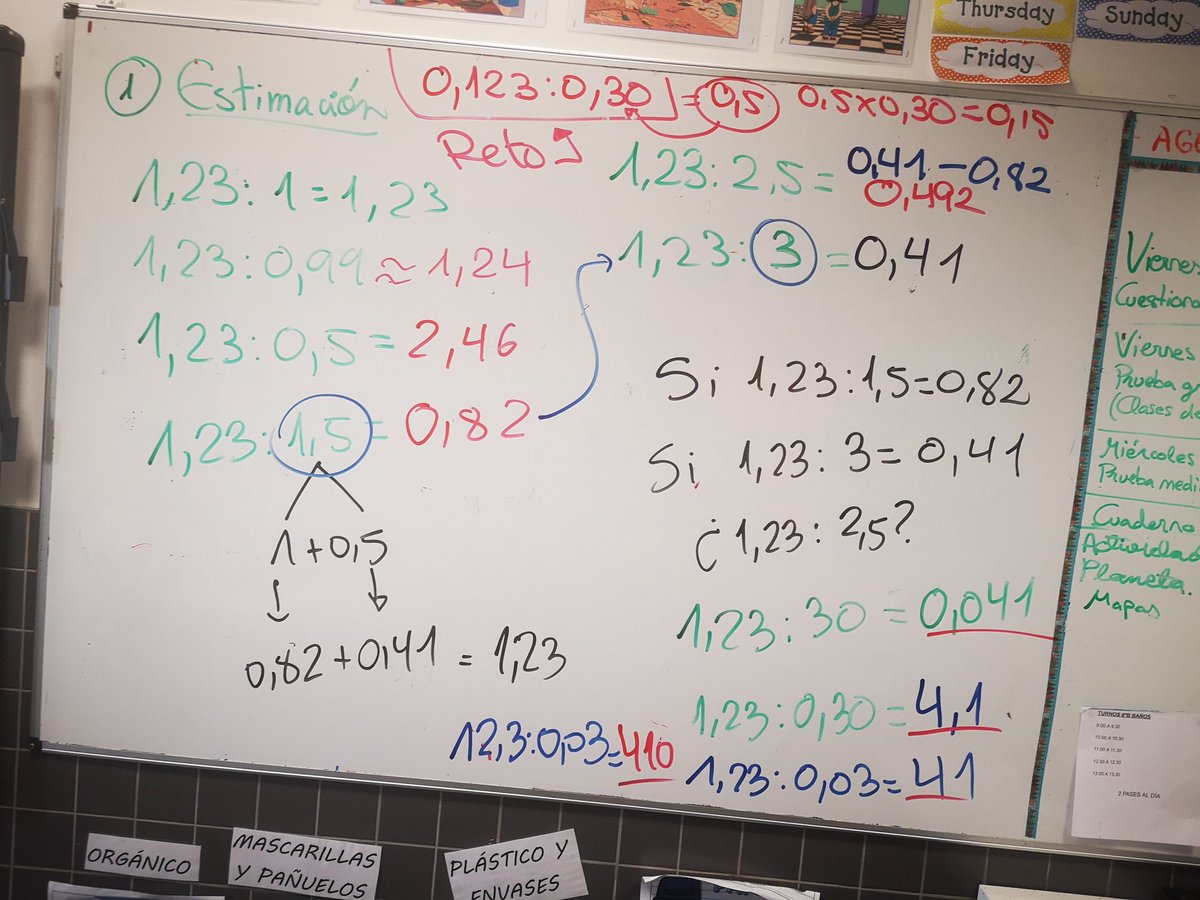 Thursday
Sunday
Friday
1 Estimación
0,123:0,30 = 0,5 0,5x0,30=0,15
Reto
1,23:1=1,23
1,23:0,99≈1,24
1,23:0,5=2,46
1,23:1,5=0,82
1+0,5
0,82+0,41=1,23
1,23:2,5=0,41-0,82
0,492
1,23:3=0,41
Si 1,23:1,5=0,82
Si 1,23:3=0,41
¿1,23:2,5?
1,23:30=0,041
1,23:0,30=4,1
12,3:0,03=410
1,23:0,03=41
Viernes
Viernes
Prueba
(Clases
Miércoles
Prueba
Cuaderno
Planeta.
Mapas
TURNOS 6ºB BAÑOS
9.00 A 9.30
10.00 A 10.30
11.00 A 11.30
12.00 A 12.30
13.00 A 13.30
2 PASES AL DÍA
ORGÁNICO
MASCARILLAS
Y PAÑUELOS
PLÁSTICO Y
ENVASES